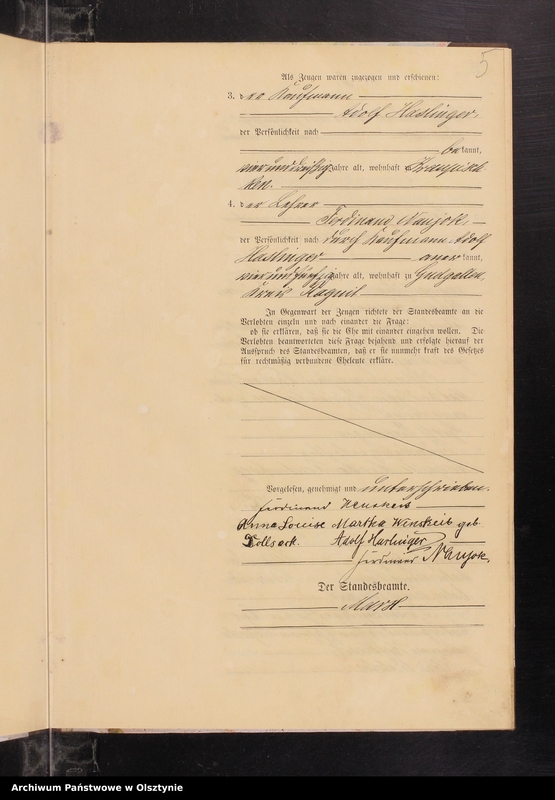 5
Als Zeugen waren zugezogen und erschienen:
3. der Kaufmann
Adolf Haslinger,
der Persönlichkeit nach
bekannt,
vierunddreißig Jahre alt, wohnhaft
ken.
4. der Lehrer
Ferdinand Naujok,
der Persönlichkeit nach durch Kaufmann Adolf
Haslinger anerkannt,
vierundfünfzig Jahre alt, wohnhaft zu Gudgallen,
Kreis Ragnit
In Gegenwart der Zeugen richtete der Standesbeamte an die
Verlobten einzeln und nach einander die Frage:
ob sie erklären, daß sie die Ehe mit einander eingehen wollen. Die
Verlobten beantworteten diese Frage bejahend und erfolgte hierauf der
Ausspruch des Standesbeamten, daß er sie nunmehr kraft des Gesetzes
für rechtmäßig verbundene Eheleute erkläre.
Vorgelesen, genehmigt und unterschrieben.
Ferdinand
Anna Louise Martha Winskeis geb.
Adolf Haslinger
Ferdinand Naujok.
Der Standesbeamte.
Archiwum Państwowe w Olsztynie